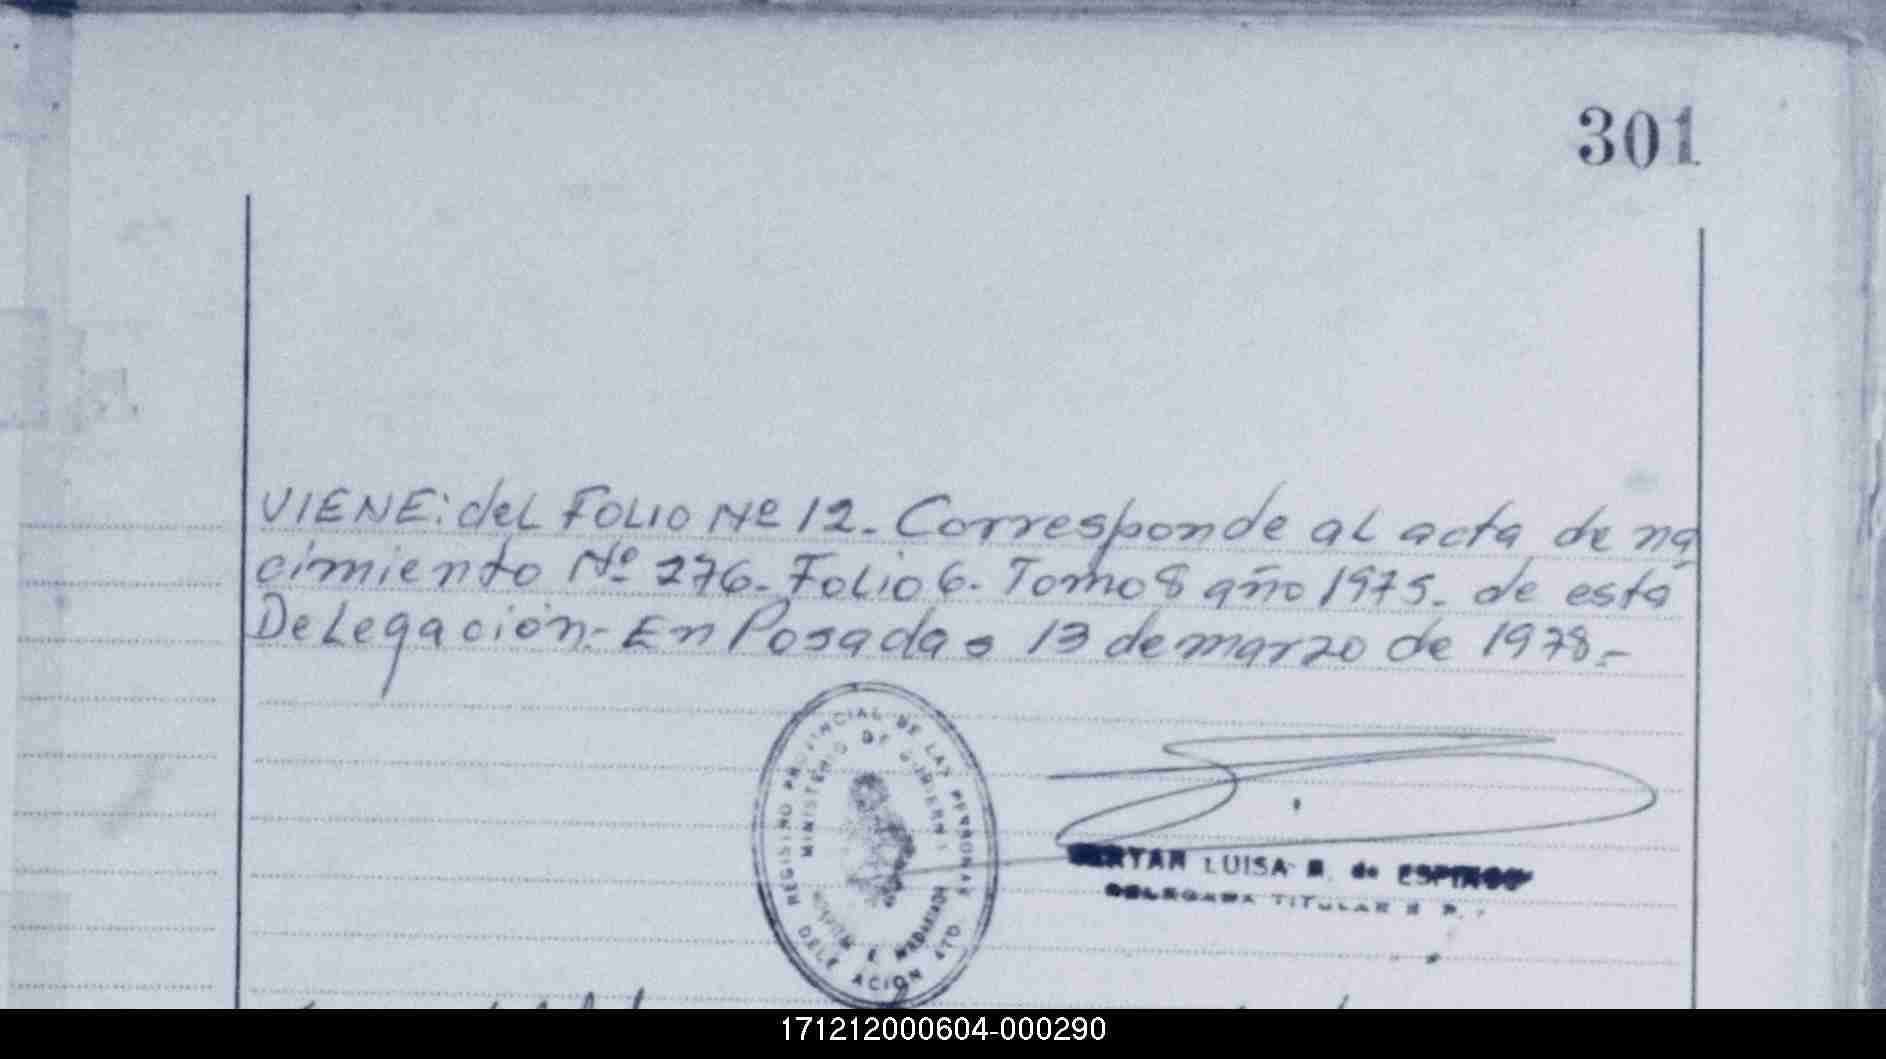 301
VIENE: del FOLIO Nº 12. Corresponde al acta de na
cimiento Nº 276. Folio 6. Tomo 8 año 1975. de está
Delegación.- En Posadas 13 de marzo de 1978.-
REGISTRO PROVINCIAL DE LAS PERSONAS
MINISTERIO DE GOBIERNO
DELEGACION
LUISA de
DELEGADA TITULAR
171212000604-000290